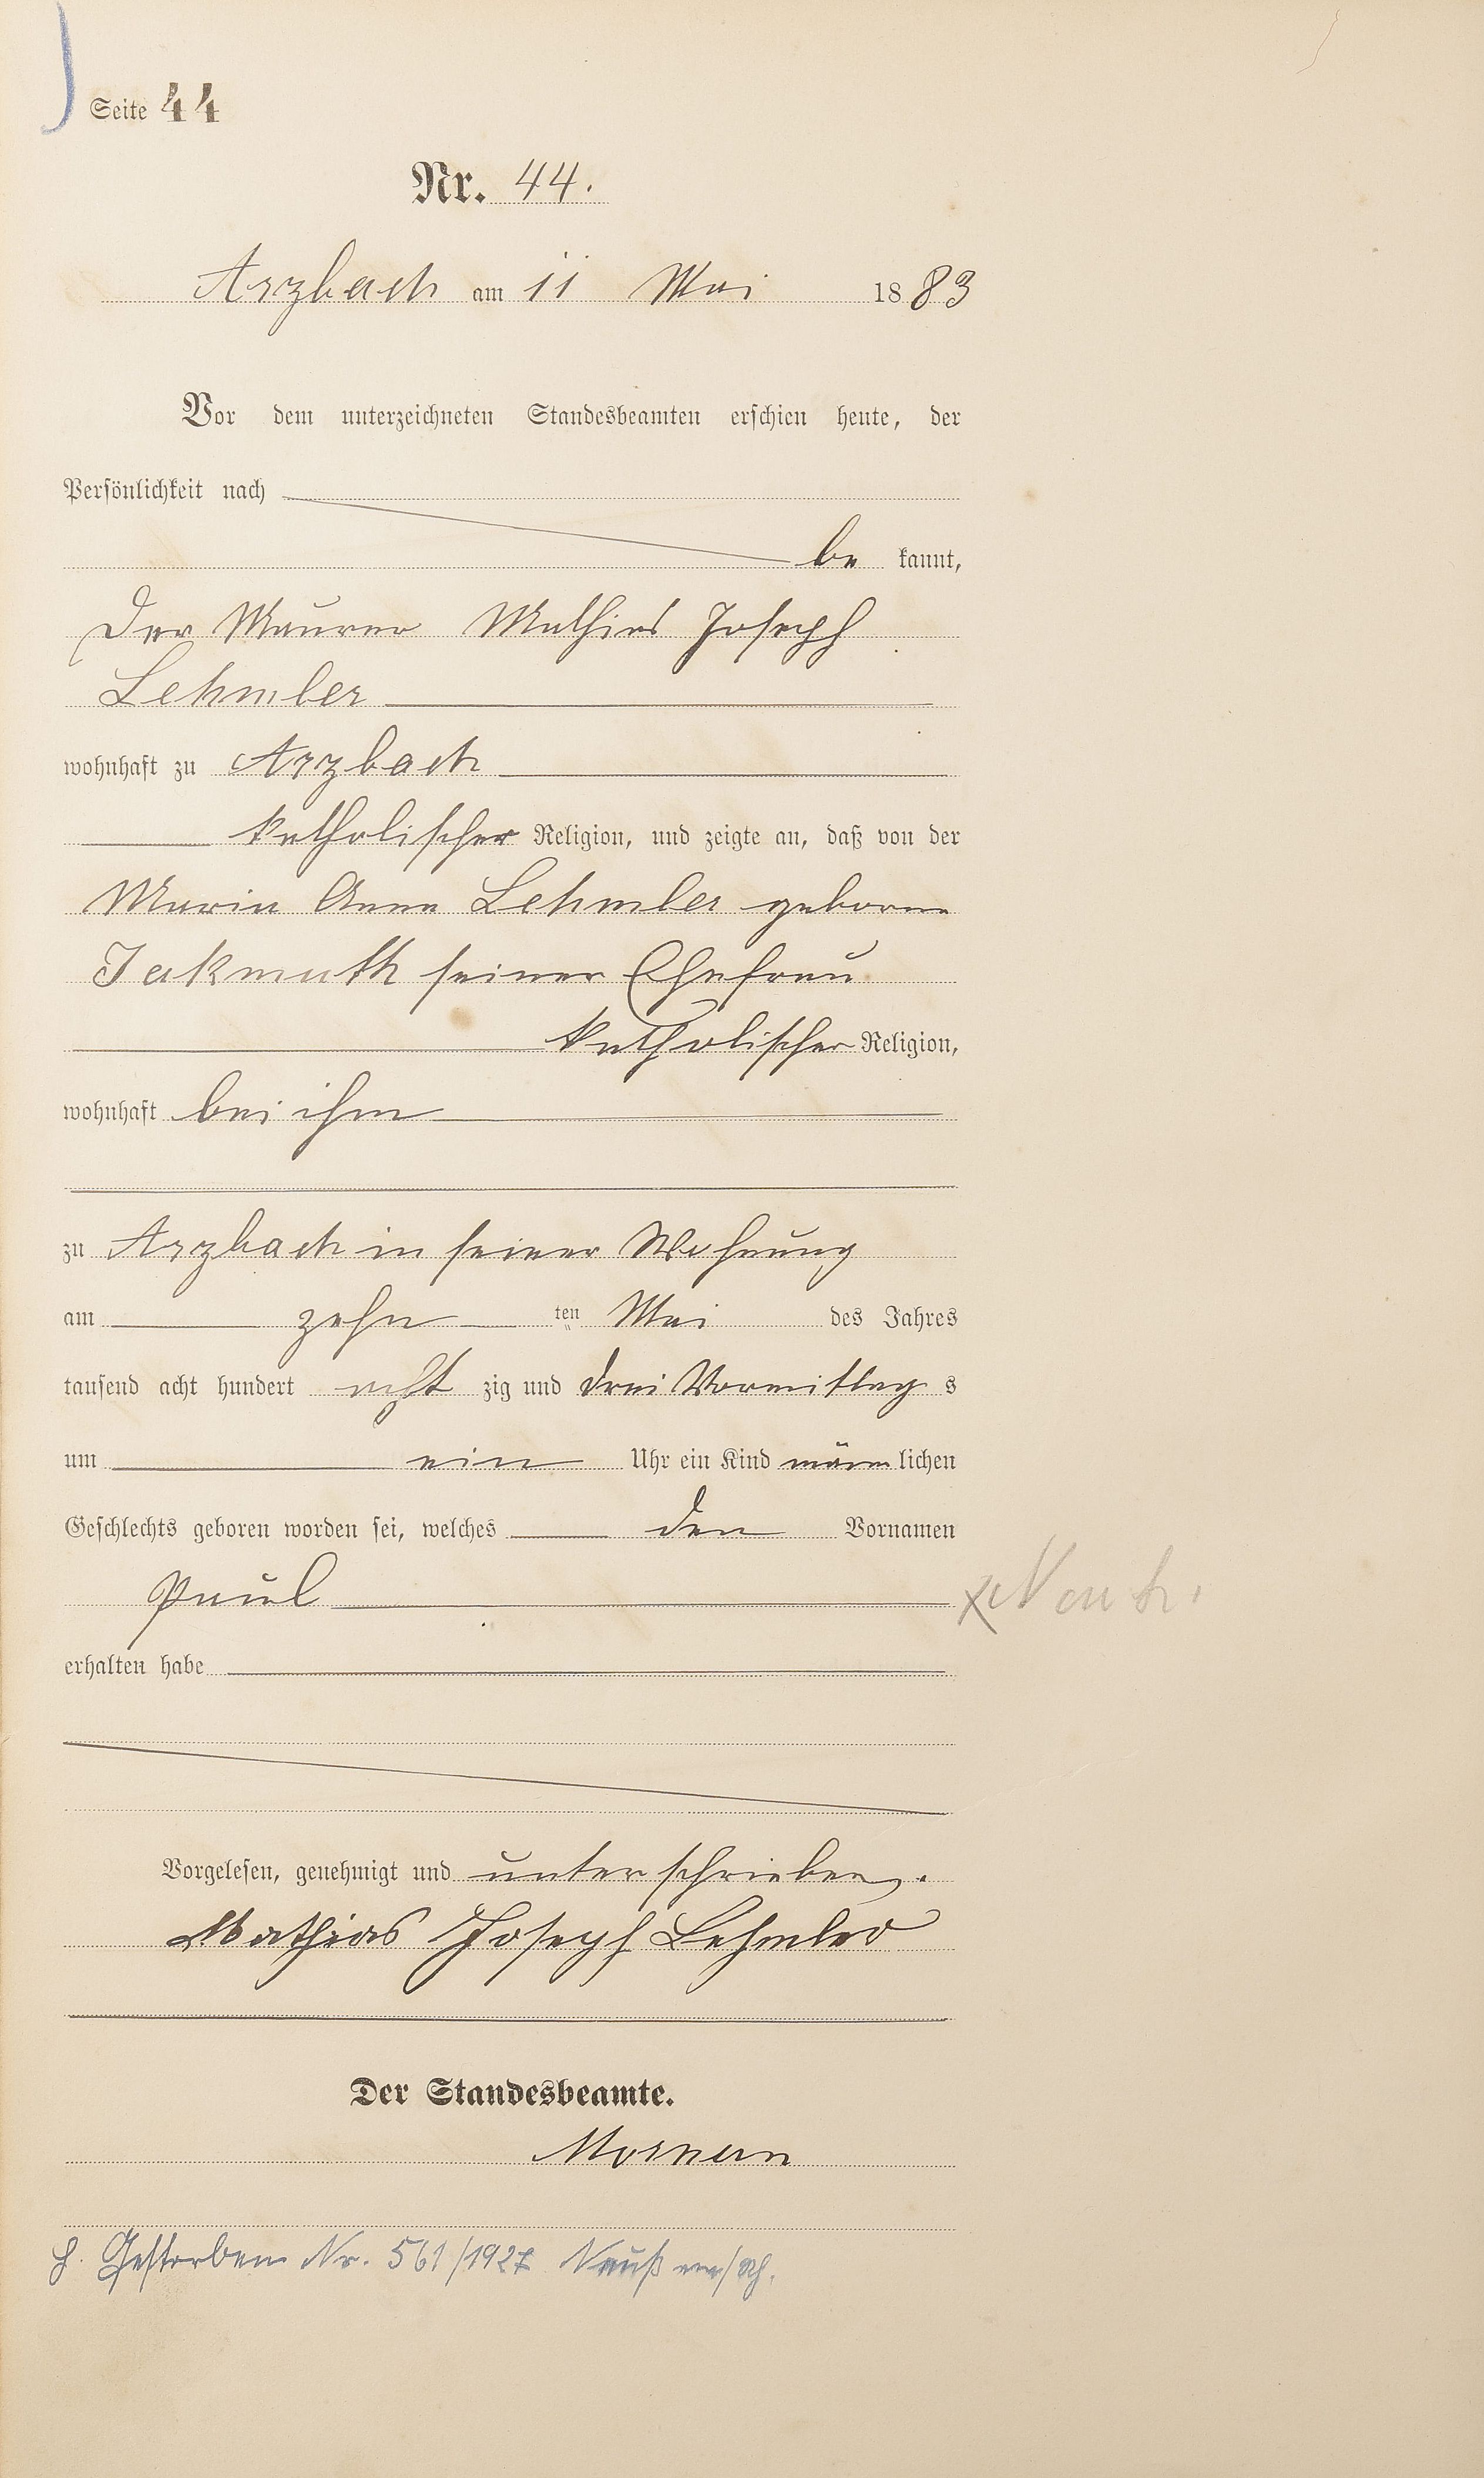 Seite 44
Nr. 44.
Arzbach am 11 Mai 1883
Vor dem unterzeichneten Standesbeamten erschien heute, der
Persönlichkeit nach
be kannt,
der Maurer Mathias Joseph
Lehmler
wohnhaft zu Arzbach
katholischer Religion, und zeigte an, daß von der
Maria Anna Lehmler geborne
Jakmuth seiner Ehefrau
katholischer Religion,
wohnhaft bei ihm
zu Arzbach in seiner Wohnung
am zehn ten Mai des Jahres
tausend acht hundert acht zig und drei Vormittag s
um ein Uhr ein Kind männlichen
Geschlechts geboren worden sei, welches den Vornamen
Paul
erhalten habe
Vorgelesen, genehmigt und unterschrieben.
Mathias Joseph Lehmler
Der Standesbeamte.
Gestorben Nr. 561/1927 Neuß